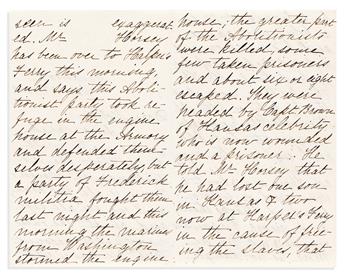 seen is exaggerat
ed. Mr Horsey
has been over to Harpers
Ferry this morning,
and says this Aboli-
tionist party took re-
fuge in the engine
house at the Armory
and defended them
selves desperately but
a party of Frederick
militia fought them
last night and this
morning the marines
from Washington
stormed the engine
house, the greater part
of the Abolitionists
were killed, some
few taken prisoners
and about six or eight
escaped. They were
headed by Capt Brown
of Kansas celebrity
who is now wounded
and a prisoner. He
told Mr Horsey that
he had lost one son
in Kansas & two
now at Harper's Ferry
in the cause of free-
ing the slaves, that